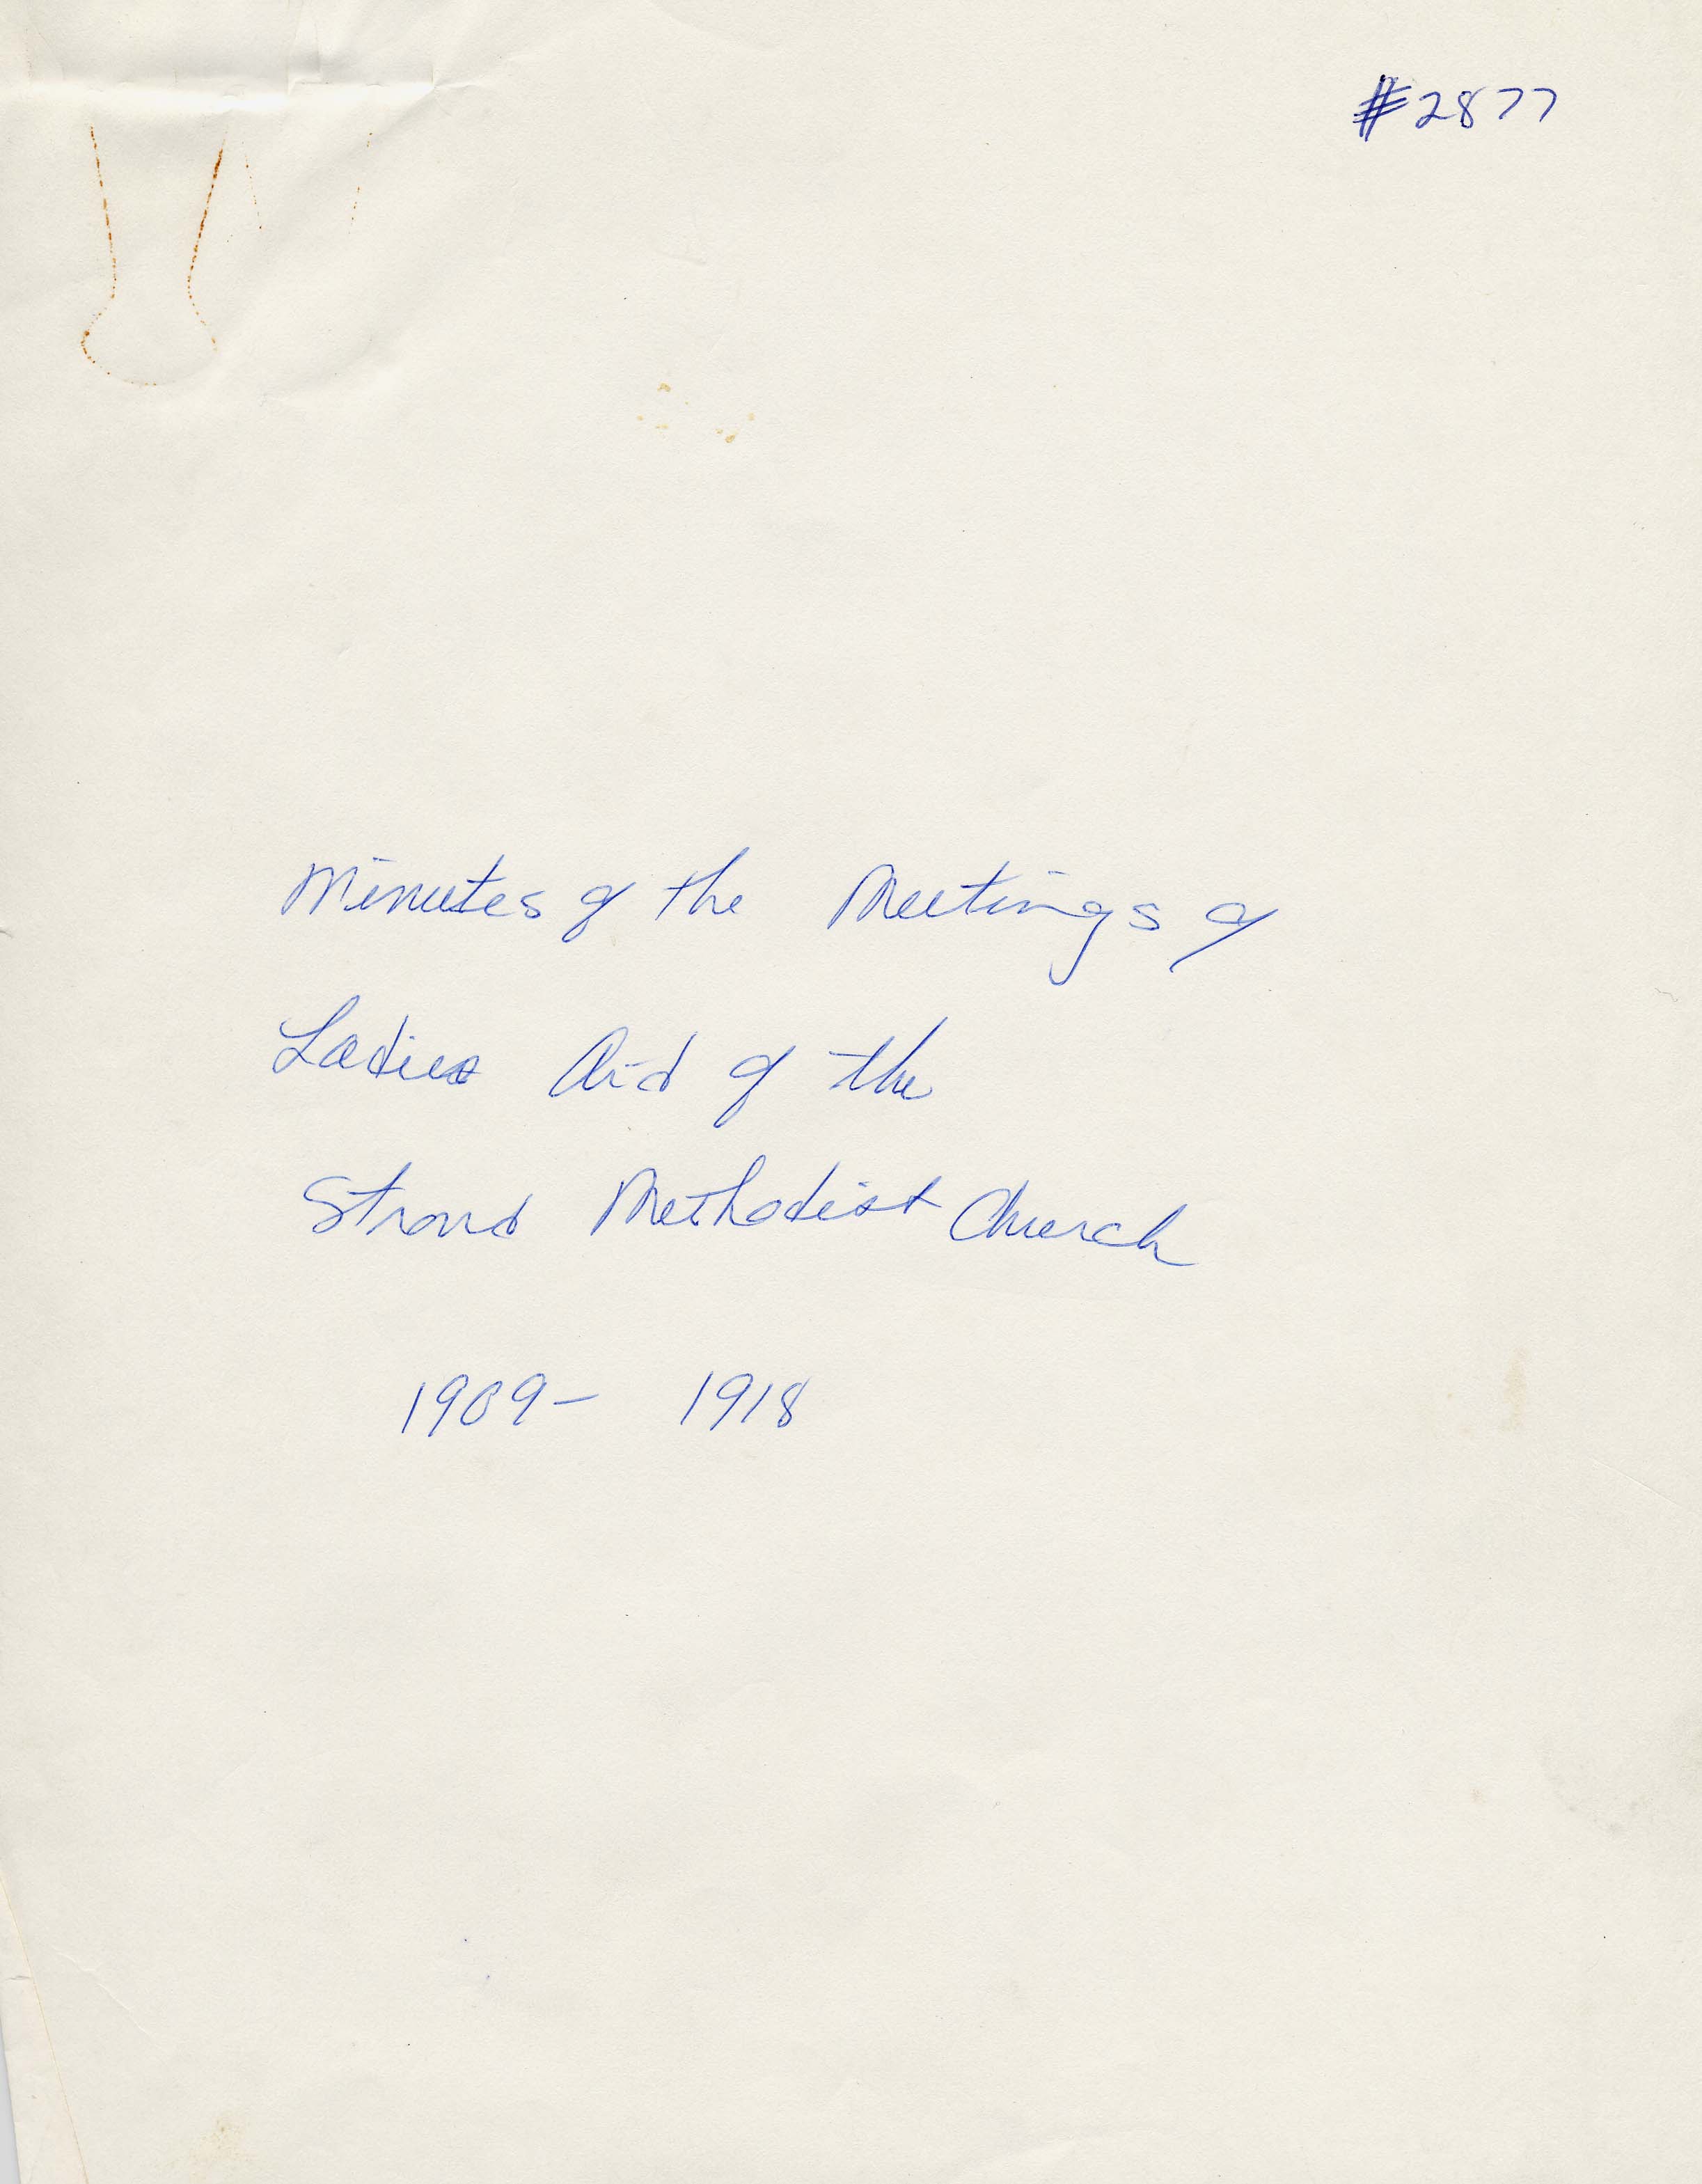 #2877
Minutes of the Meetings of
Ladies Aid of the
Strond Methodist Church
1909- 1918